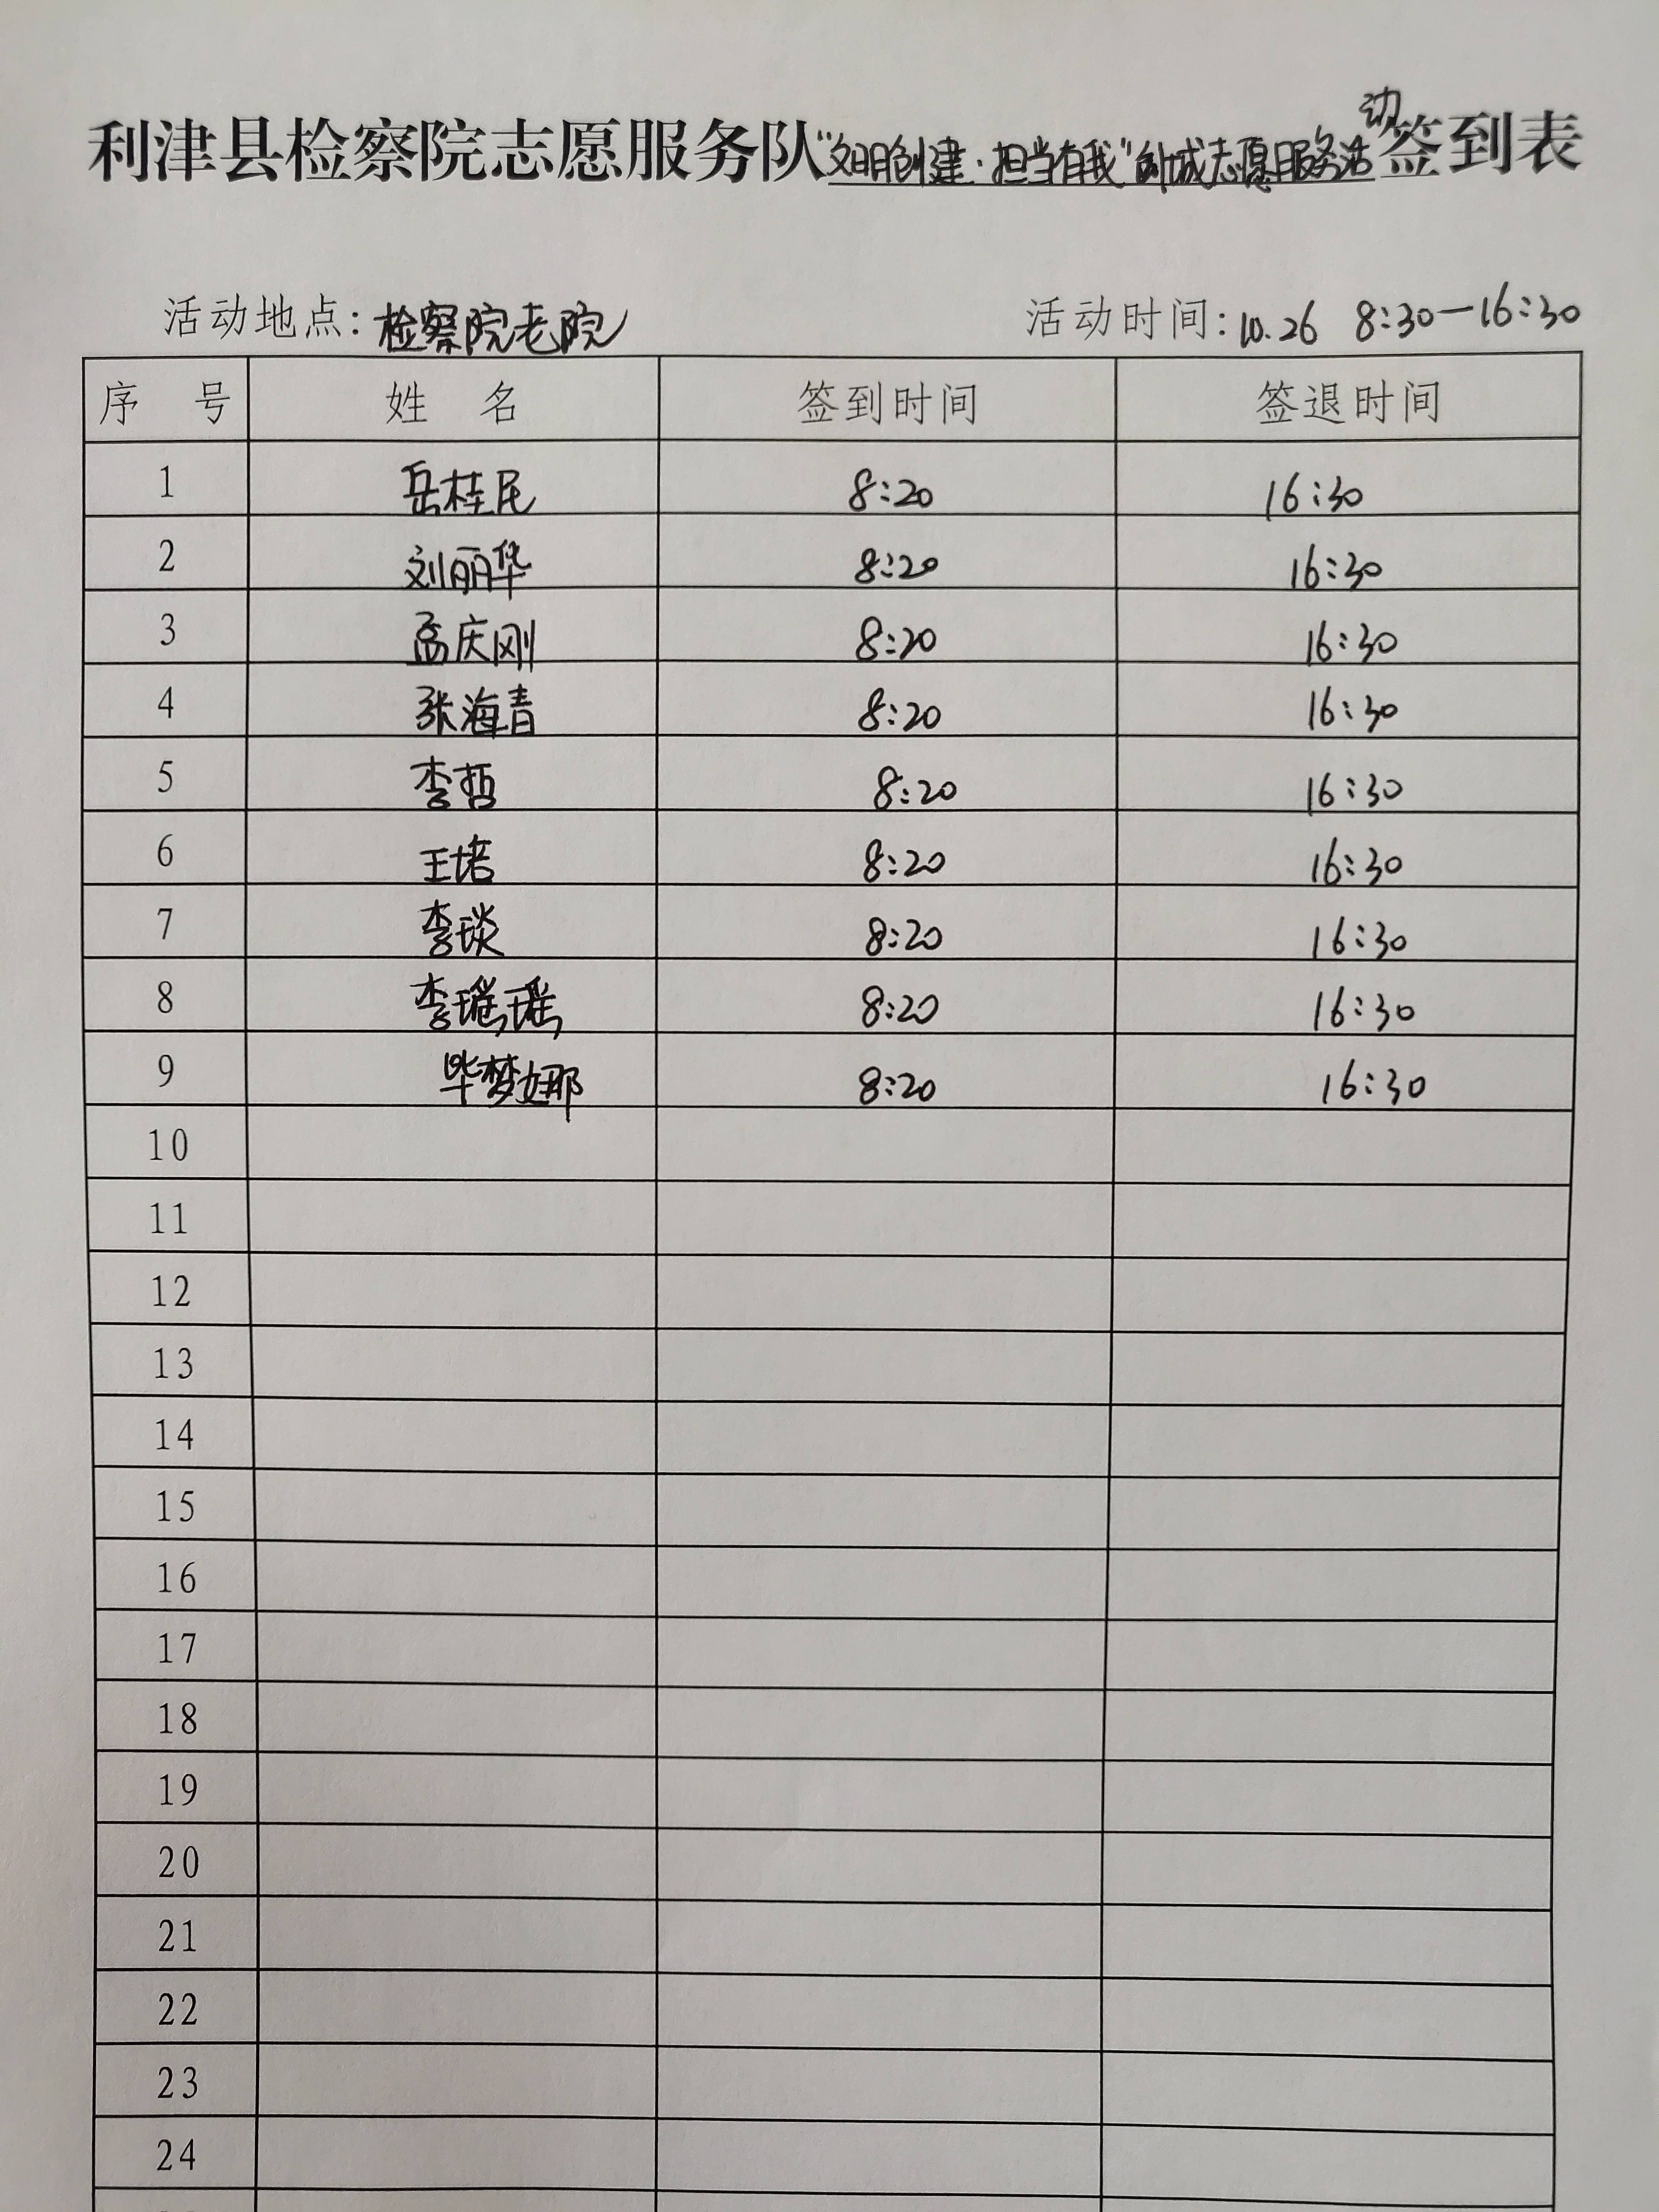 利津县检察院志愿服务队"文明创建·担当有我"创城志愿服务活动签到表
活动地点:检察院老院 活动时间:10.26 8:30—16:30
序 号 姓 名 签到时间 签退时间
1 岳桂民 8:20 16:30
2 刘丽华 8:20 16:30
3 孟庆刚 8:20 16:30
4 张海青 8:20 16:30
5 李哲 8:20 16:30
6 王培 8:20 16:30
7 李琰 8:20 16:30
8 李瑶瑶 8:20 16:30
9 毕梦娜 8:20 16:30
10
11
12
13
14
15
16
17
18
19
20
21
22
23
24